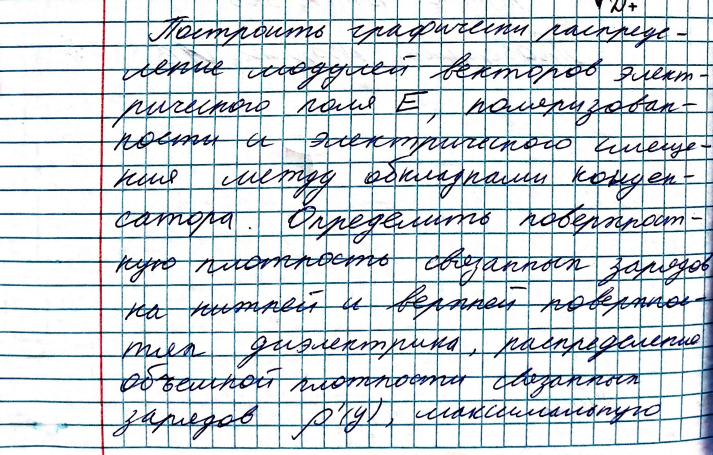 D+
Построить графически распреде-
ление модулей векторов элект-
рического поля E, поляризован-
ности и электрического смеще-
ния между обкладками конден-
сатора. Определить поверхност-
ную плотность связанных зарядов
на нижней и верхней поверхнос-
тях диэлектрика, распределение
объемной плотности связанных
зарядов ρ'(y), максимальную